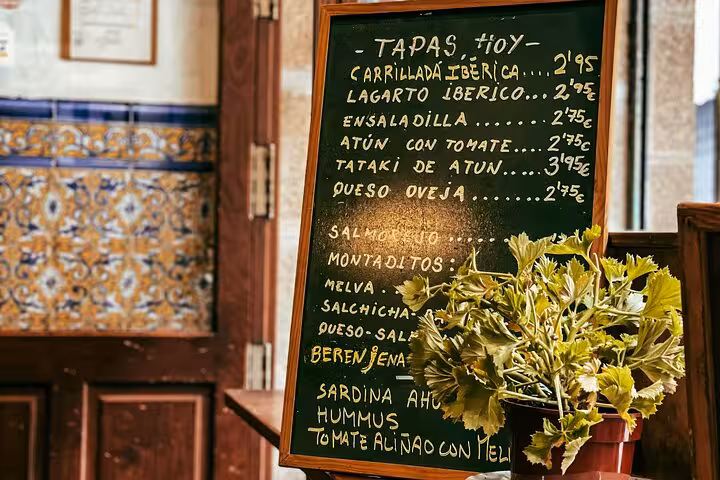 - TAPAS, HOY -
CARRILLADA IBÉRICA.... 2'95
LAGARTO IBERICO... 2'95€
ENSALADILLA ....... 2'75€
ATÚN CON TOMATE.... 2'75€
TATAKI DE ATUN..... 3'95€
QUESO OVEJA ....... 2'75€
SALMOREJO .....
MONTADITOS:
MELVA .
SALCHICHA-
QUESO-SALA
BERENJENA
SARDINA AHU
HUMMUS
TOMATE ALIÑAO CON MEL